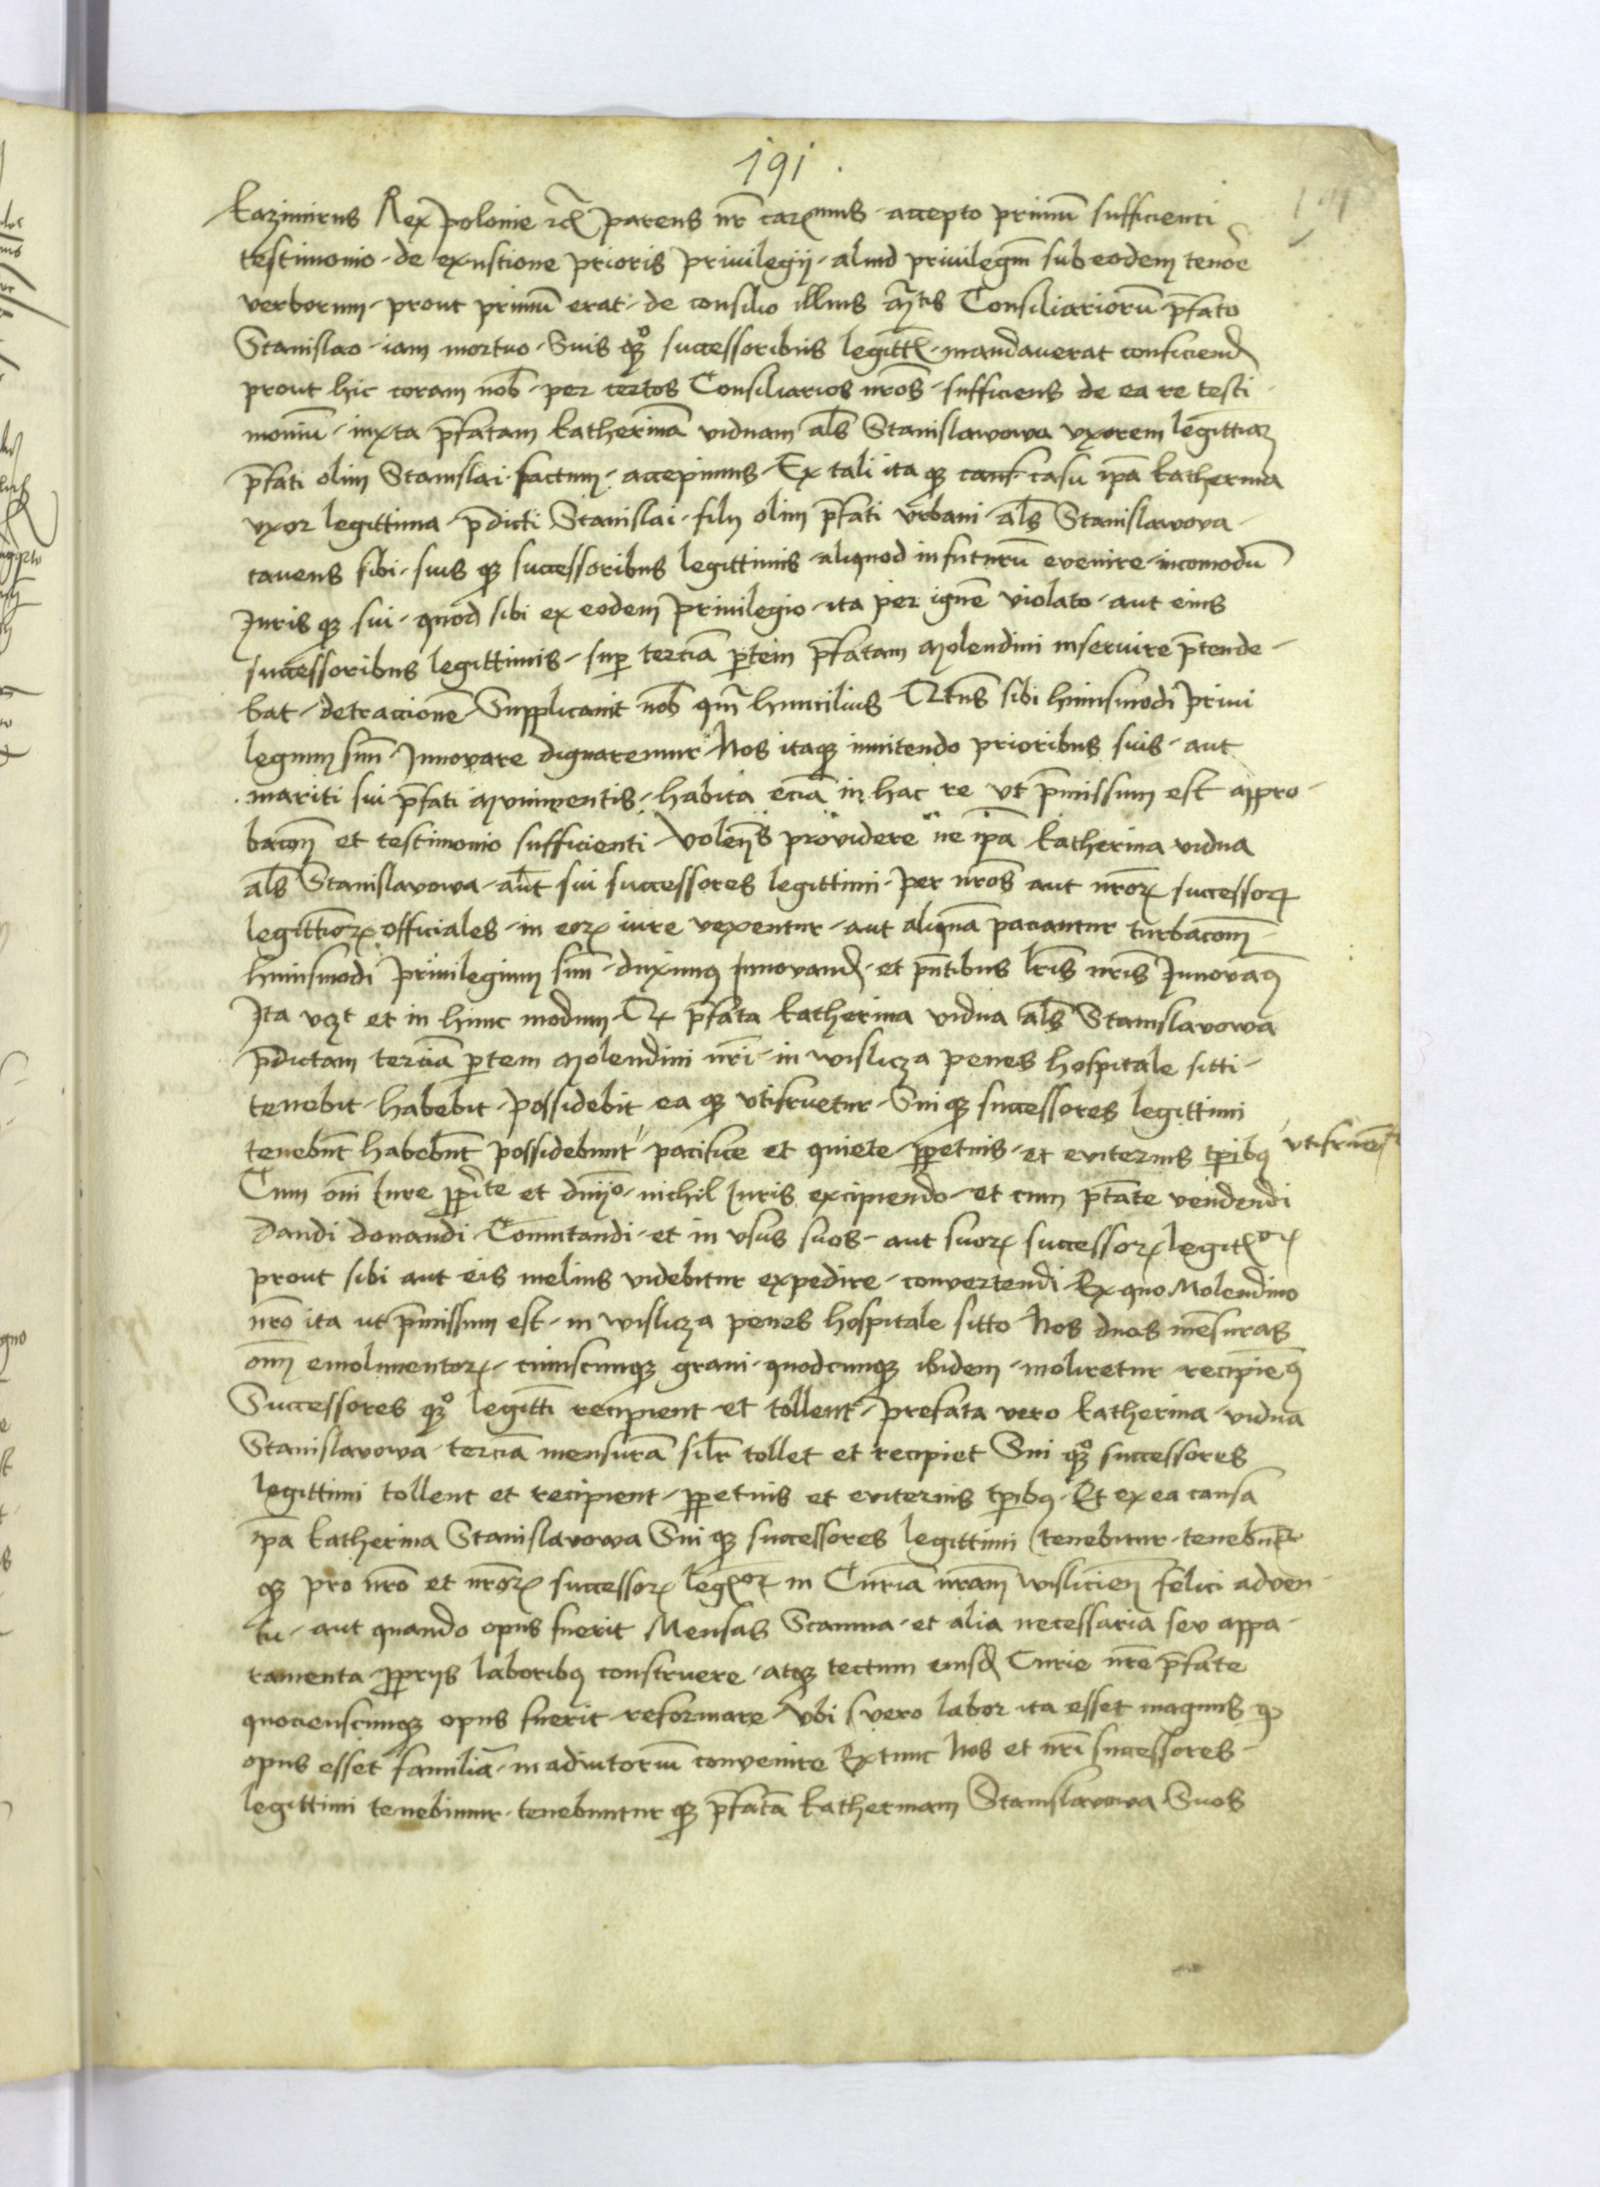 191
Kazimirus Rex polonie etc parens nr̄ carmus · accepto primū sufficienti
testimonio · de exustione prioris privilegij · aliud privilegm̄ sub eodem tenōe
verborum · prout primū erat · de consilio illius Mtis Consiliariorū · p̄fato
Stanislao · iam mortuo · Suis qȝ successoribus legittĩ · mandaverat conficiend
prout hic coram nob̄ · per certos Consiliarios nr̄os · sufficiens de ea re testi
moniū · iuxta p̄fatam Katherinā viduam al̄s Stanislawowa uxorem legittiaȝ
p̄fati olim Stanislai · factum · accepimus · Ex tali ita qȝ casu ip̄a Katherina
uxor legittima · p̄dicti Stanislai · filij olim p̄fati urbani · al̄s Stanislavova ·
cavens sibi · suis qȝ successoribus legittimis · aliquod in futurū evenire · incomodū
Juris qȝ sui · quod sibi ex eodem privilegio · ita per ignē violato · aut eius
successoribus legittimis · sup terciā p̄tem p̄fatam Molendini inservire p̄tende ·
bat · detraccionē · Supplicavit nob̄ qm̄ humilius · Qtns sibi huiusmodi Privi
legium suū · Innovare dignaremur · Nos itaqȝ innitendo prioribus suis · aut
mariti sui p̄fati munimentis · habita eciā in hac re ut p̄missum est appro ·
bacōn et testimonio sufficienti · Volen̄s providere ne ip̄a Katherina vidua
al̄s Stanislavowa · aut sui successores legittimi · per nr̄os aut nr̄oꝝ successoꝝ
legittioꝝ officiales · in eoꝝ iure vexentur · aut aliquā paciantur turbacōnm̄ ·
huiusmodi privilegium suū · duximus Innovand · et pn̄tibus lr̄is nr̄is Innovaꝰ
Ita vȝt et in hunc modum · Qt p̄fata Katherina vidua al̄s Stanislavowa
p̄dictam terciā p̄tem Molendini nr̄i · in wislicza penes hospitale sitti ·
tenebit · habebit · possidebit ea qȝ utifruetur · Sui qȝ successores legittimi
tenebūt habebūt possidebunt · pacifice et quiete · p̄petuis · et eviternis tp̄ibꝰ utifruēt
Cum om̄i Iure p̄p̄ite et dn̄ijo · nichil Iuris excipiendo · et cum p̄tate vendendi
Dandi donandi · Comutandi · et in usus suos · aut suoꝝ successoꝝ legitoꝝ
prout sibi aut eis melius videbitur expedire · convertendi · Ex quo Molendino
nr̄o ita ut p̄missum est · in wislicza penes hospitale sitto Nos duas mēsuras
om̄ emolimentoꝝ · cuiuscunqȝ grani · quodcunqȝ ibidem · moliretur recipieꝰ
Successores qȝ legittī recipient et tollent · prefata vero Katherina · vidua
Stanislavova · terciā mensurā silr̄ tollet et recipiet Sui qȝ successores
legittimi tollent et recipient · p̄petuis et eviternis tp̄ibꝰ · Et ex ea causa
ip̄a Katherina Stanislavowa Sui qȝ successores legittimi tenebitur · tenebūtr
qȝ pro nr̄o et nr̄oꝝ successoꝝ legoꝝ in Curiā nr̄am wislicien felici adven ·
tu · aut quando opus fuerit Mensas Scamna · et alia necessaria seu appa ·
ramenta p̄prijs laboribꝰ construere · atqȝ tectum eiusd Curie nr̄e p̄fate
quocienscunqȝ opus fuerit reformare · Ubi vero labor ita esset magnus q
opus esset familiā · in adiutoriū convenire Extunc Nos et nr̄i successores ·
legittimi tenebimur · tenebuntur qȝ p̄fatā Katherinam Stanislavova · Suos